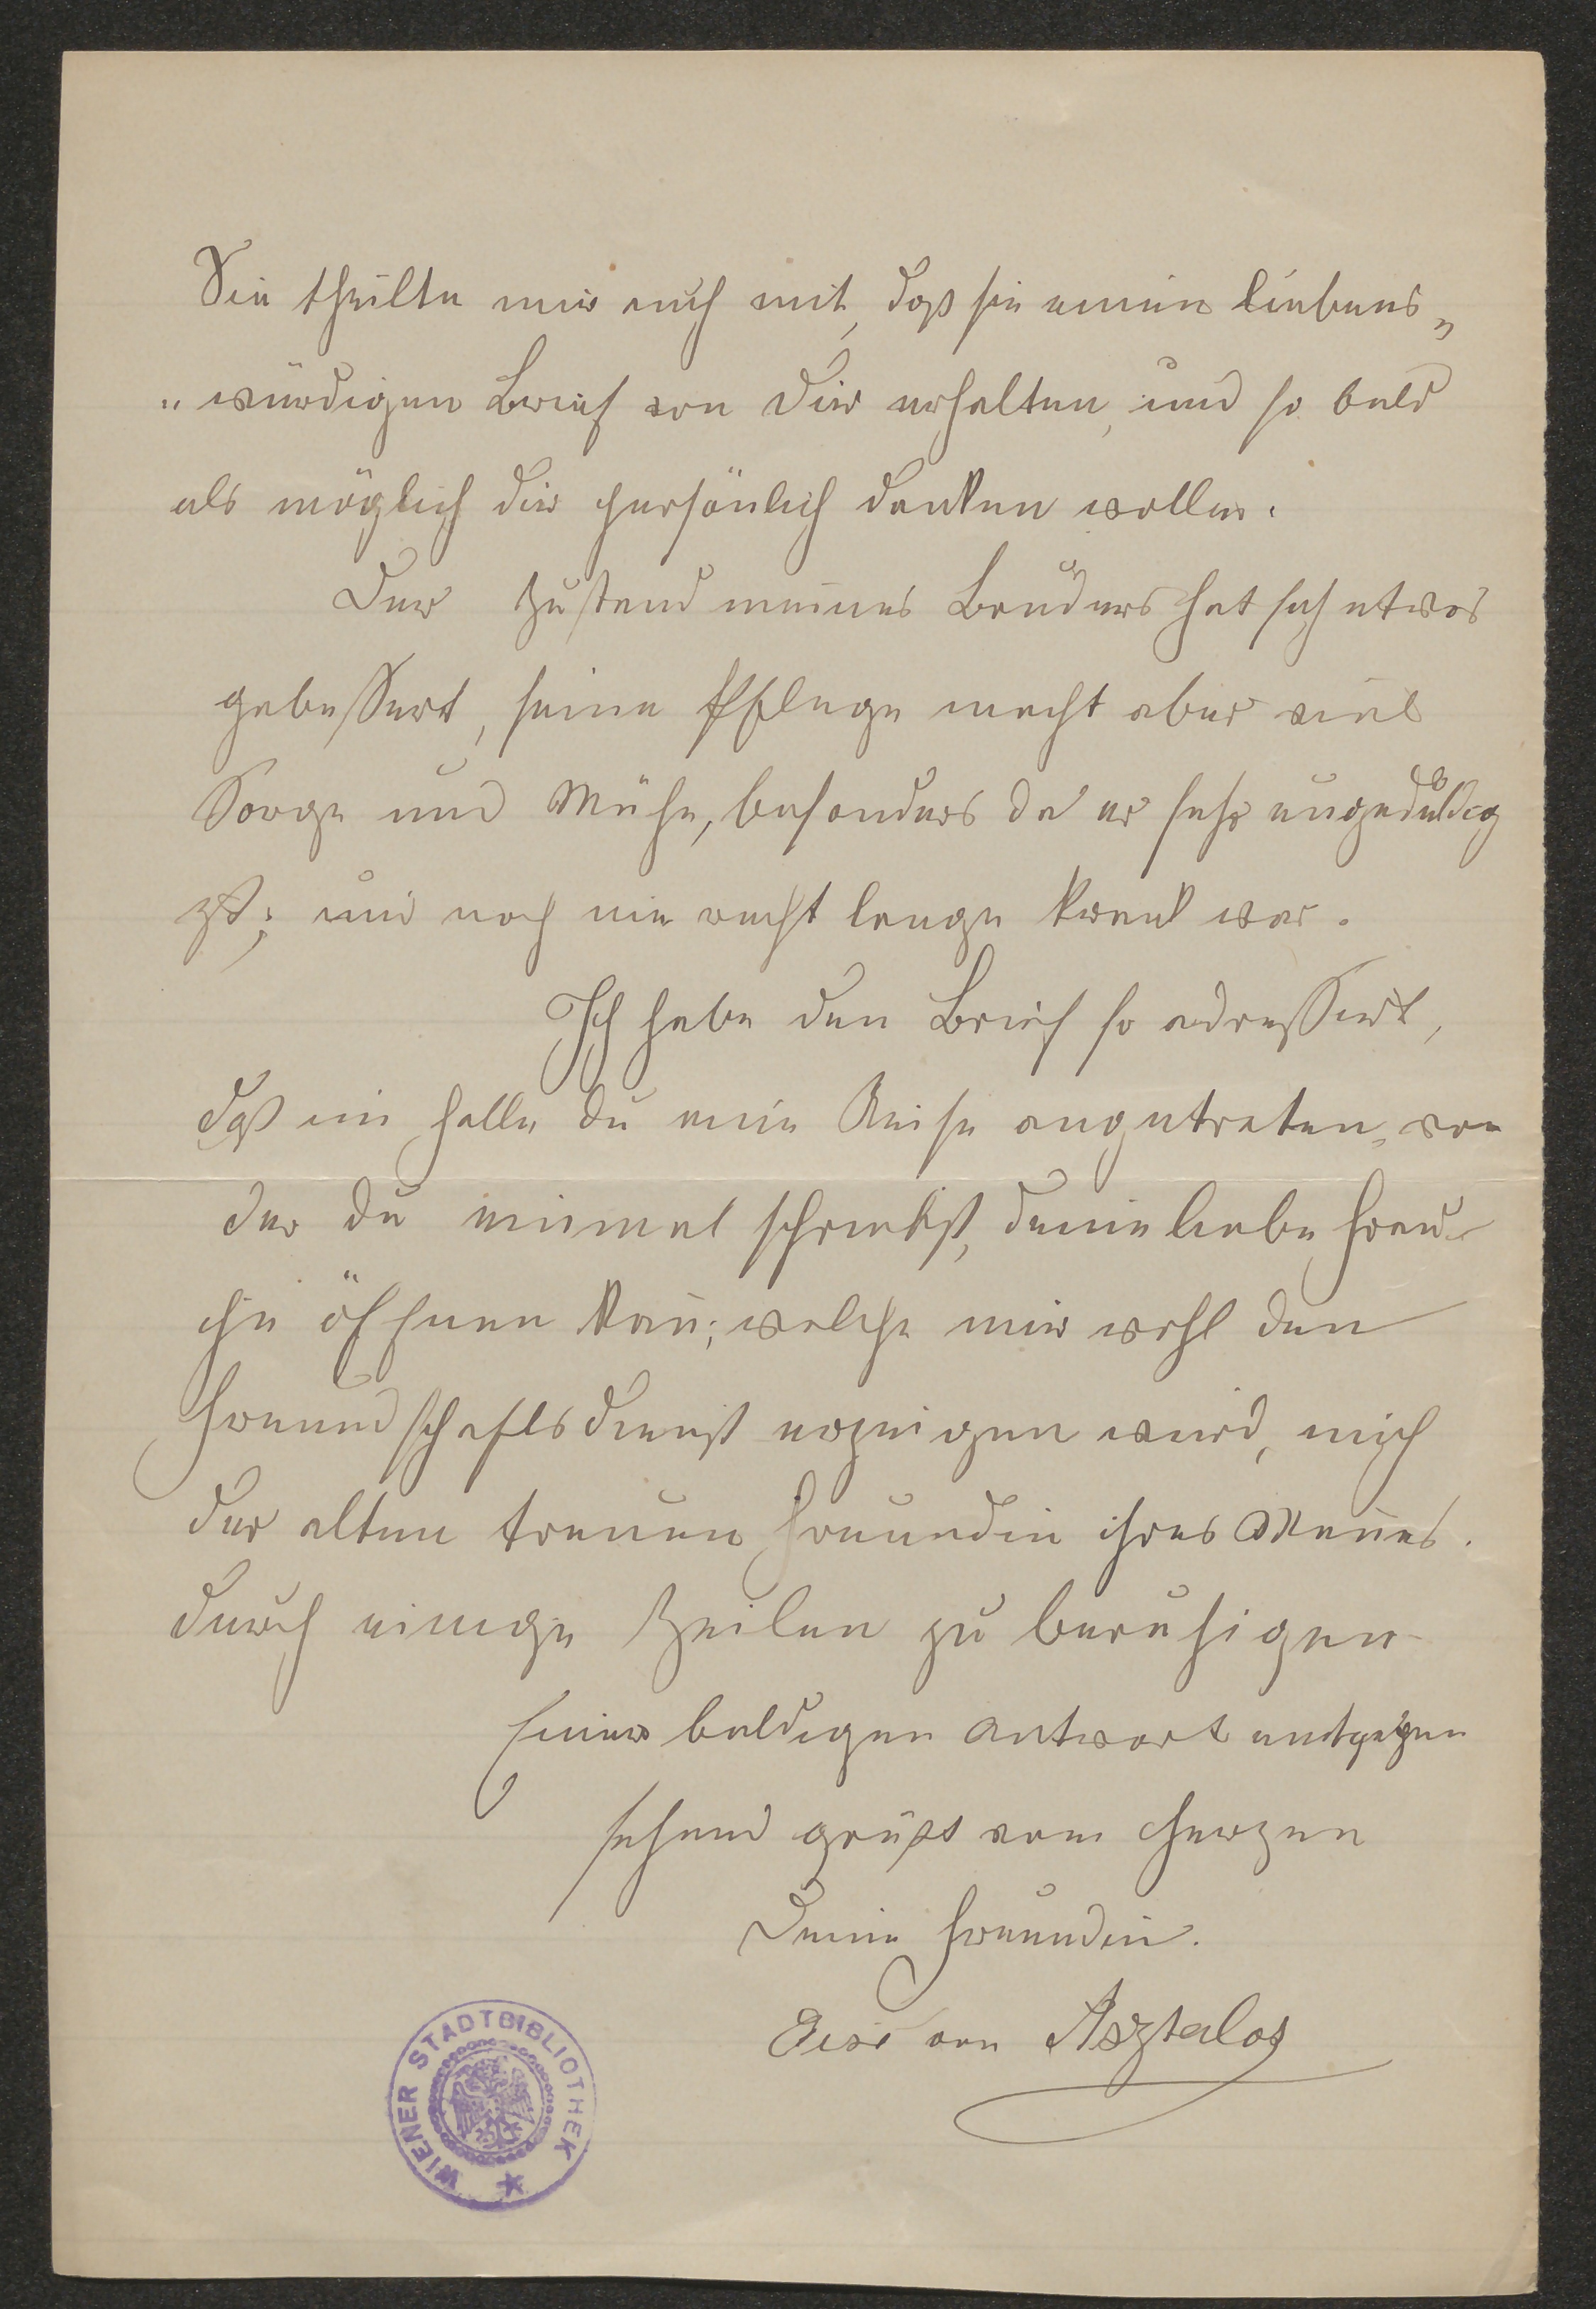 Sie theilte mir auch mit, daß sie einen liebens„
„würdigen Brief von Dir erhalten, und so bald
als möglich Dir persönlich danken wollen.
Der Zustand meines Bruders hat sich etwas
gebessert, seine Pflege macht aber viel
Sorge und Mühe, besonders da er sehr ungeduldig
ist; und noch nie recht lange krank war.
Ich habe den Brief so adressirt,
daß im Falle du eine Reise angetreten, von
der du einmal schriebst, deine liebe Frau
ihn öffnen kan̄; welche mir wohl den
Freundschaftsdienst erzeigen wird, mich
der alten treuen Freundin ihres Man̄es.
durch einige Zeilen zu beruhigen
Einer baldigen Antwort entgegen
sehend grüßt vom Herzen
Deine Freundin.
von Asztalos
WIENER STADTBIBLIOTHEK